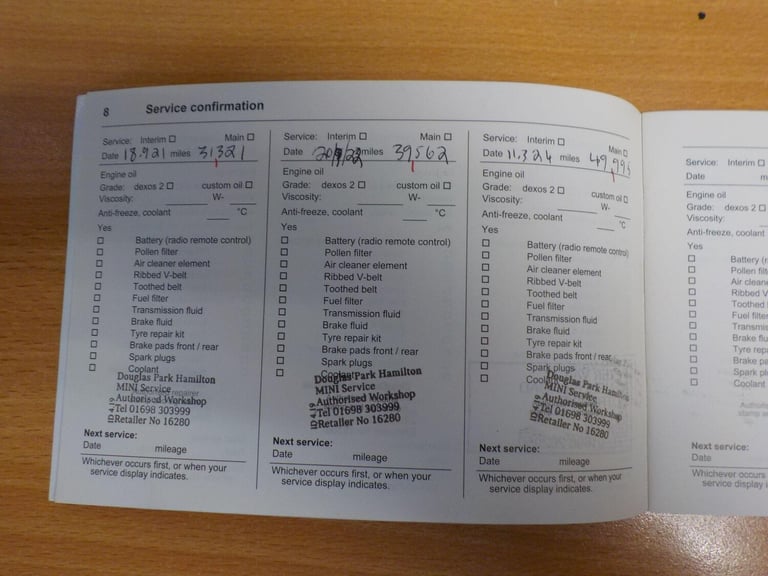 8 Service confirmation
Service: Interim ☐ Main ☐
Date 18.9.21 miles 31,321
Engine oil
Grade: dexos 2 ☐ custom oil ☐
Viscosity: W-
Anti-freeze, coolant °C
Yes
☐ Battery (radio remote control)
☐ Pollen filter
☐ Air cleaner element
☐ Ribbed V-belt
☐ Toothed belt
☐ Fuel filter
☐ Transmission fluid
☐ Brake fluid
☐ Tyre repair kit
☐ Brake pads front / rear
☐ Spark plugs
☐ Coolant
Douglas Park Hamilton
MINI Service
Authorised Workshop
Tel 01698 303999
Retailer No 16280
Next service:
Date mileage
Whichever occurs first, or when your
service display indicates.
Service: Interim ☐ Main ☐
Date miles 39562
Engine oil
Grade: dexos 2 ☐ custom oil ☐
Viscosity: W-
Anti-freeze, coolant °C
Yes
☐ Battery (radio remote control)
☐ Pollen filter
☐ Air cleaner element
☐ Ribbed V-belt
☐ Toothed belt
☐ Fuel filter
☐ Transmission fluid
☐ Brake fluid
☐ Tyre repair kit
☐ Brake pads front / rear
☐ Spark plugs
☐ Coolant
Douglas Park Hamilton
MINI Service
Authorised Workshop
Tel 01698 303999
Retailer No 16280
Next service:
Date mileage
Whichever occurs first, or when your
service display indicates.
Service: Interim ☐ Main ☐
Date 11.3.24 miles 49,995
Engine oil
Grade: dexos 2 ☐ custom oil ☐
Viscosity: W-
Anti-freeze, coolant °C
Yes
☐ Battery (radio remote control)
☐ Pollen filter
☐ Air cleaner element
☐ Ribbed V-belt
☐ Toothed belt
☐ Fuel filter
☐ Transmission fluid
☐ Brake fluid
☐ Tyre repair kit
☐ Brake pads front / rear
☐ Spark plugs
☐ Coolant
Douglas Park Hamilton
MINI Service
Authorised Workshop
Tel 01698 303999
Retailer No 16280
Next service:
Date mileage
Whichever occurs first, or when your
service display indicates.
Service: Interim ☐
Date m
Engine oil
Grade: dexos 2 ☐
Viscosity:
Anti-freeze, coolant
Yes
☐ Battery (r
☐ Pollen filt
☐ Air clean
☐ Ribbed V
☐ Toothed
☐ Fuel filte
☐ Transmis
☐ Brake flu
☐ Tyre repa
☐ Brake pa
☐ Spark pl
☐ Coolant
Next service:
Date mileage
Whichever occurs
service display i